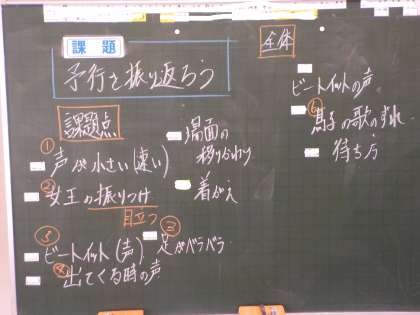 課題
予行を振り返ろう
課題点
① 声が小さい(速い)
② 女王の振りつけ
目立つ
③ ビートイット(声)
④ 出てくる時の声
場面の
移りかわり
着がえ
②
足がバラバラ
全体
ビートイットの声
馬子の歌のずれ
待ち方